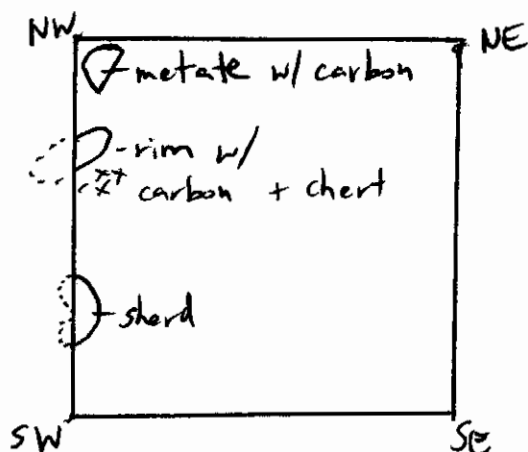 NW
NE
metate w/ carbon
rim w/
carbon + chert
sherd
SW
SE